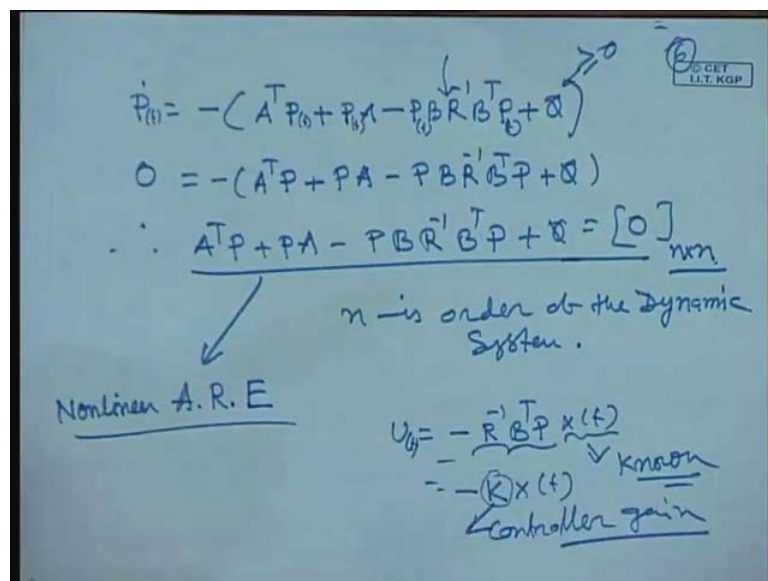 6
© CET
I.I.T. KGP
≥0
Ṗ(t) = -(AᵀP(t) + P(t)A - P(t)BR⁻¹BᵀP(t) + Q)
0 = -(AᵀP + PA - PBR⁻¹BᵀP + Q)
∴ AᵀP + PA - PBR⁻¹BᵀP + Q = [0]n×n
n - is order of the Dynamic
System.
Nonlinear A.R.E
U(t) = - R⁻¹BᵀP x(t)
Known
= - K x(t)
Controller gain